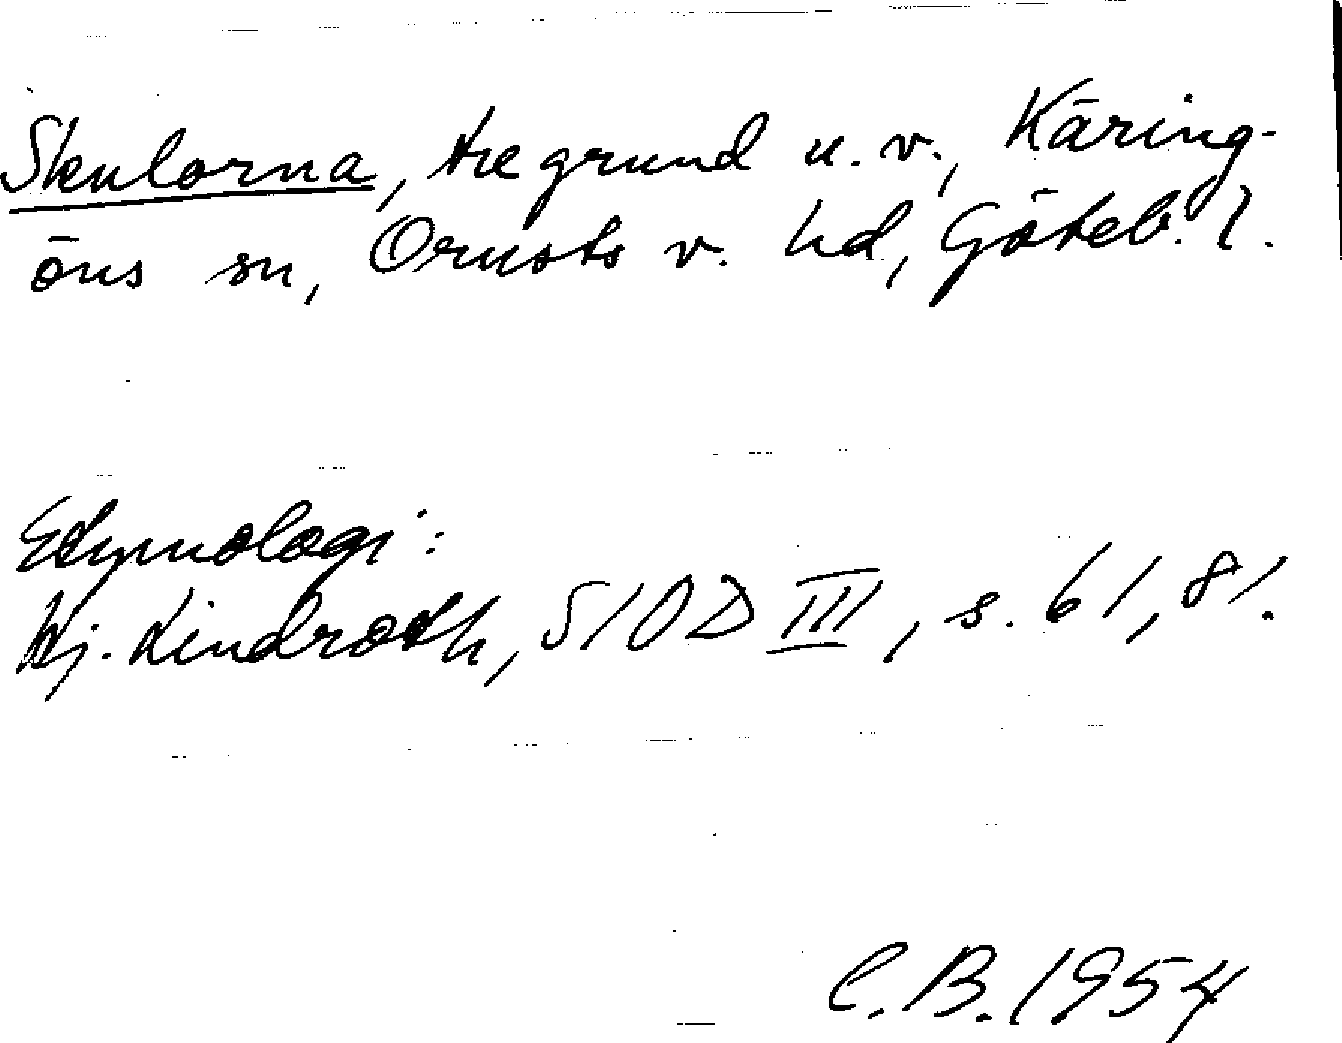 Skularna, tre grund u. v., Käring-
öns sn, Orusts v. hd, Göteb. l.
Etymologi:
Hj. Lindroth, SIOD III, s. 61, 81.
C. B. 1954